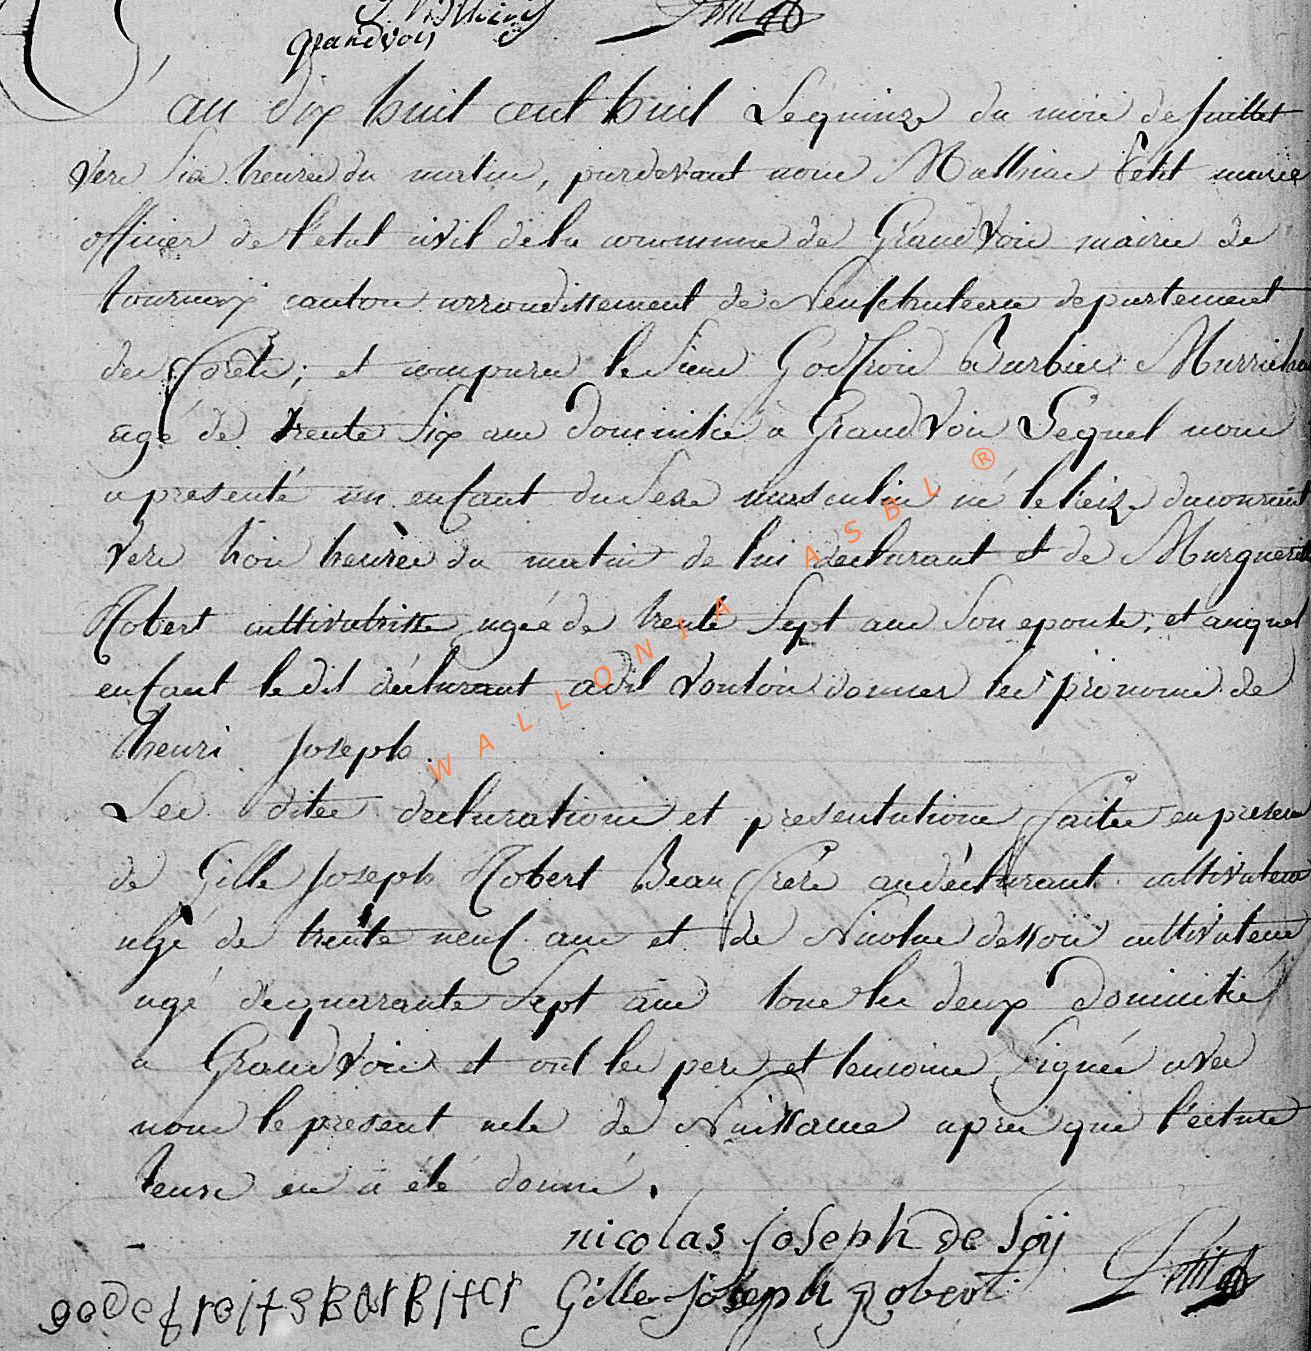 grandvoir Petit
L'an dix huit cent huit Le quinze du mois de Juillet
vers six heures du matin, pardevant nous Mathieu Petit maire
officier de l'etat civil de la commune de Grand Voir mairie de
tournay canton arrondissement de Neufchateau departement
des forêts; et comparu le Sieur Godfroid Barbier Marricha
agé de trente Six ans domicilié a Grand Voir Lequel nous
a presenté un enfant du Sexe masculin né le treize du courant
vers trois heures du matin de lui declarant et de Marguerit
Robert cultivatrisse agée de trente Sept ans Son epouse; et auquel
enfant le dit déclarant a dit vouloir donner les prenoms de
henri Joseph.
Les dites déclarations et presentations faites en presence
de Gille Joseph Robert Beau frère au déclarant cultivateur
agé de trente neuf ans et de Nicolas dessoii cultivateur
agé de quarrante Sept ans tous les deux domicilié
a Grand Voir et ont les pere et temoins Signés avec
nous le present acte de Naissance apres que l'ecture
leurs en a été donné.
nicolas joseph de soÿ
godefroit Barbier Gille joseph Robert Petit
WALLONIA ASBL ®